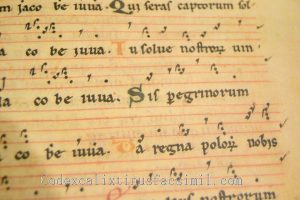 m jaco be iuua. Qui seras captorum sol
co be iuua. Tu solue nostrorum uin
co be iuua. Sis peregrinorum
co be iuua. Da regna polorum nobis
Codexcalixtinusfacsimil.com
nostrorum